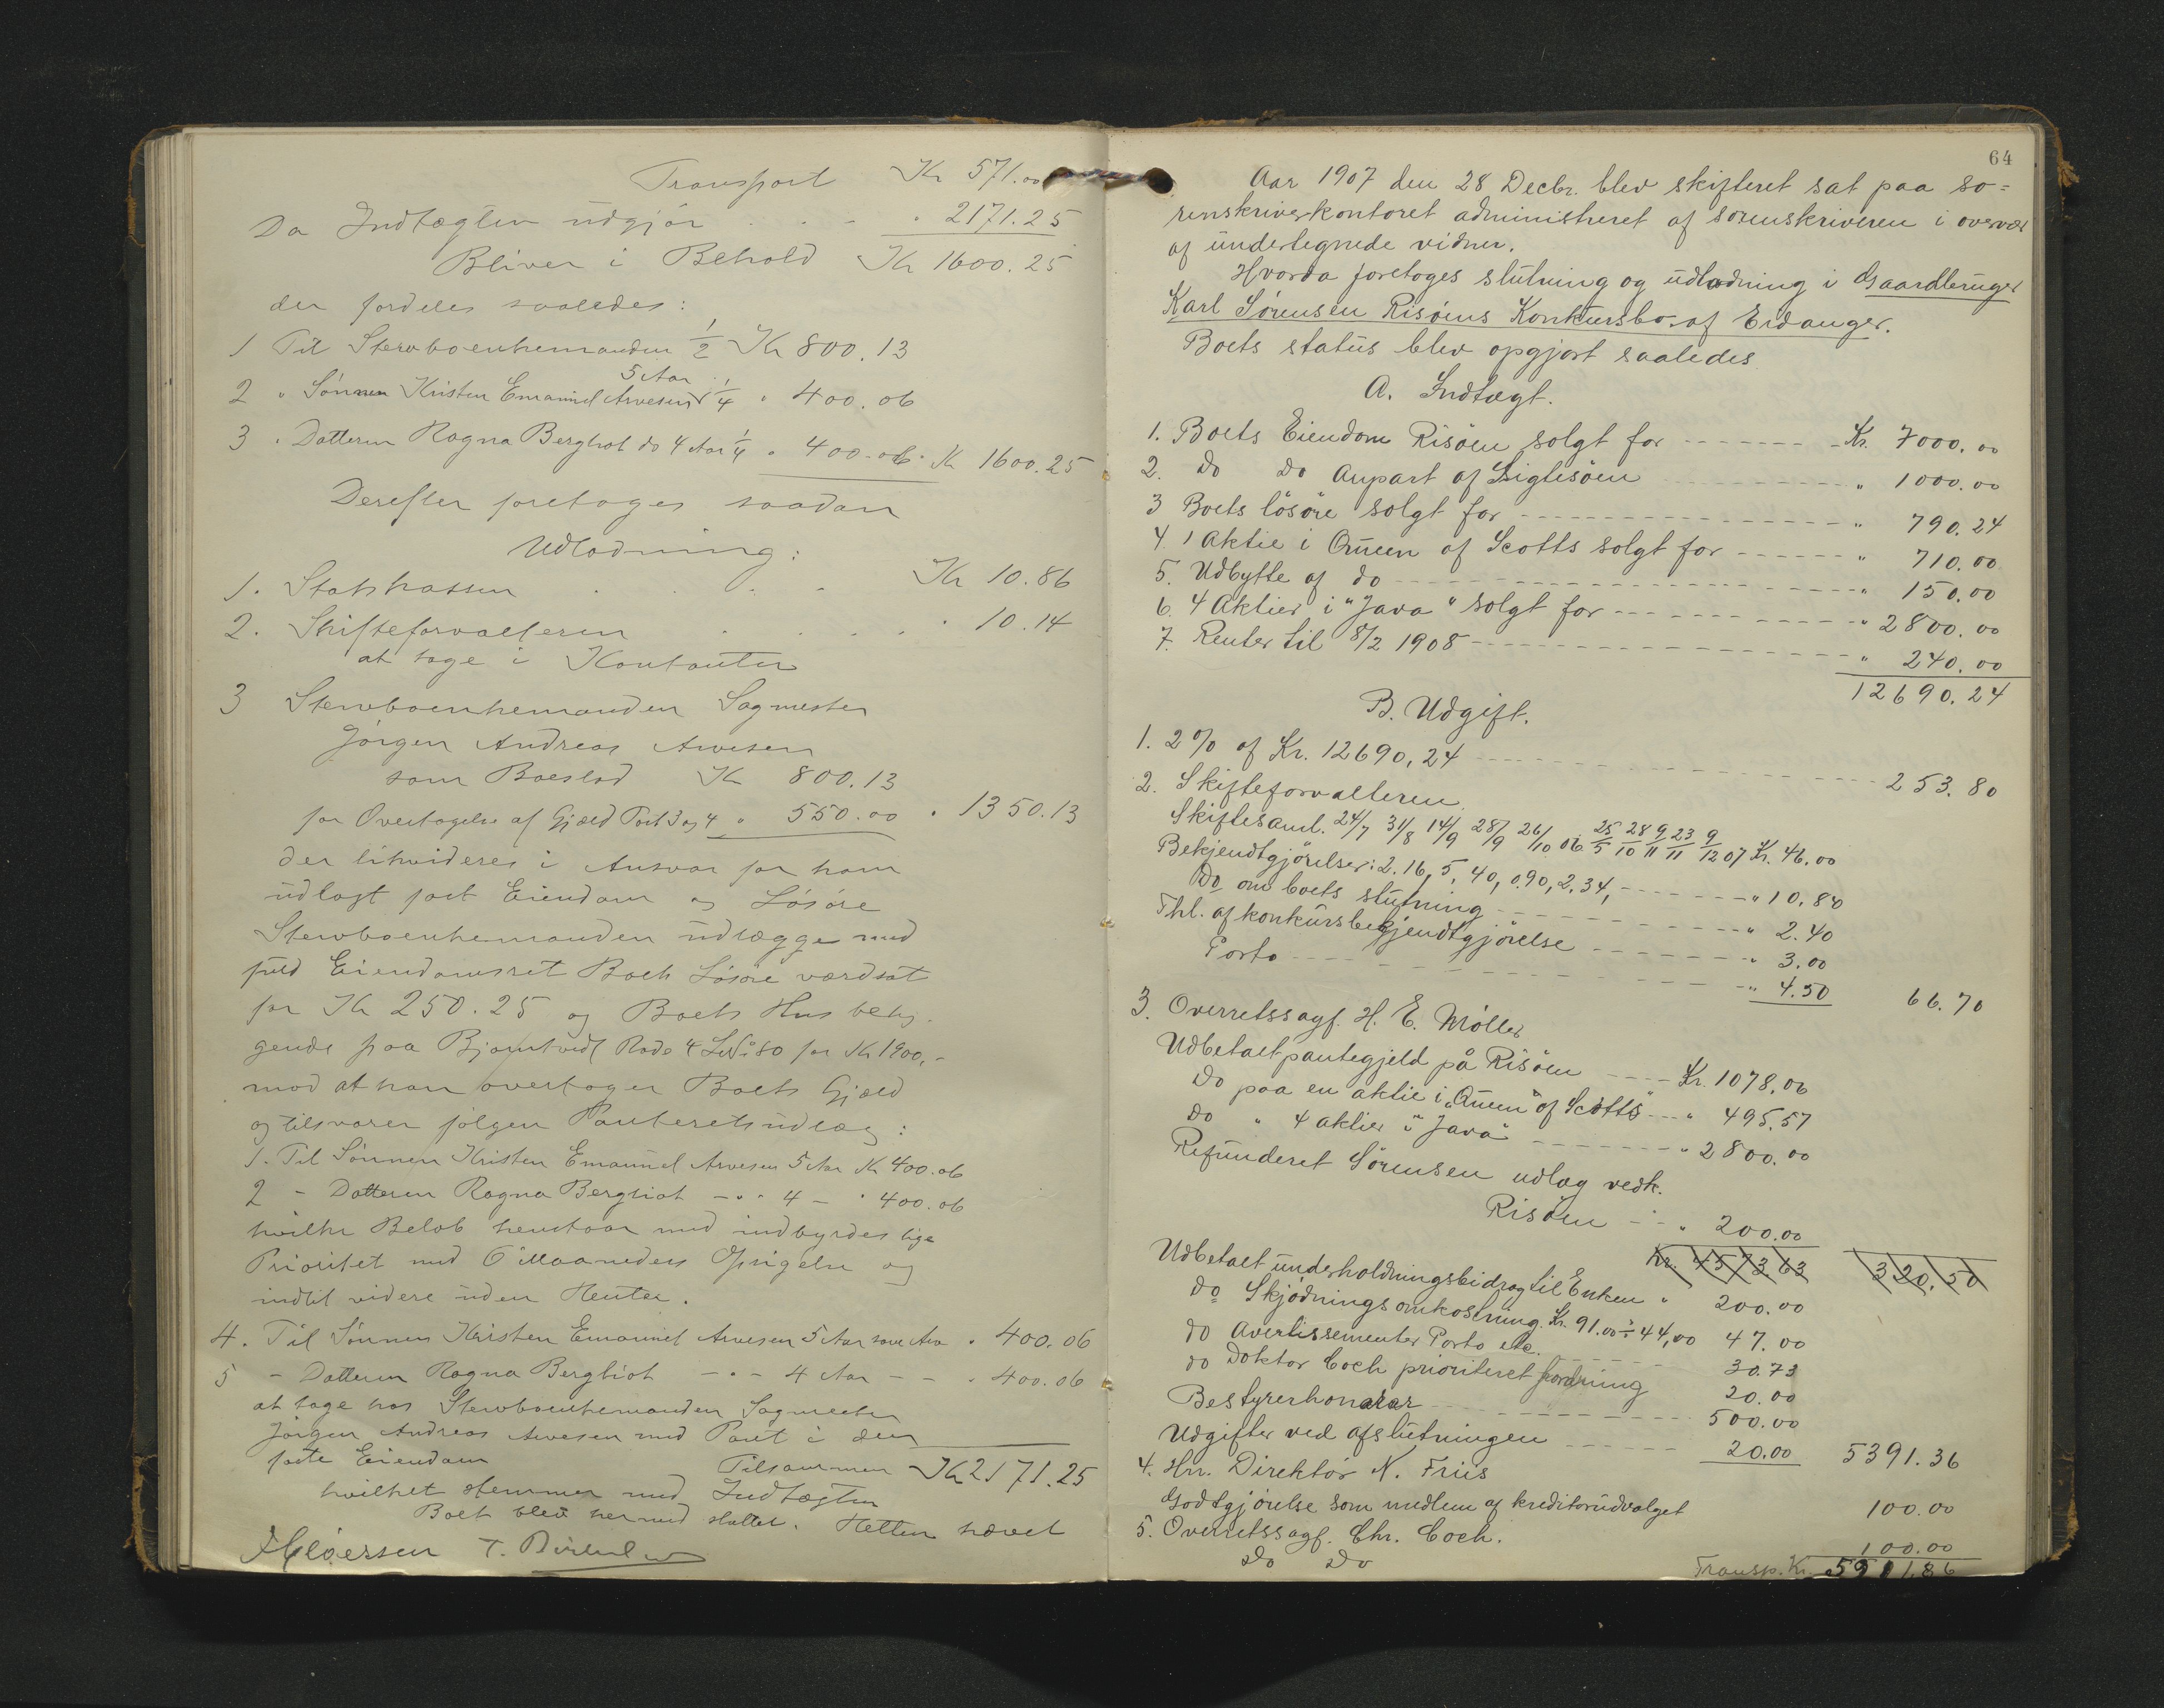 Transport Kr 571.00
Da Indtægten udgjør . . . " 2171.25
Bliver i Behold Kr 1600.25
der fordeles saaledes:
1 Til Stervboenkemanden 1/2 Kr 800.13
2 " Sønnen Kristen Emanuel Arvesen 5 Aar 1/4 " 400.06
3 " Datteren Ragna Bergliot do 4 Aar 1/4 " 400.06 " Kr 1600.25
Derefter foretages saadan
Udlodning:
1. Statskassen . . . . Kr 10.86
2. Skifteforvalteren . . . . " 10.14
at tage i Kontanter
3 Stervboenkemanden Sagmester
Jörgen Andreas Arvesen
som Boeslod Kr 800.13
for Overtagelse af Gjæld Post 3 og 4 " 550.00 " 1350.13
der likvideres i Ansvar for ham
udlagt fast Eiendom og Løsøre
Stervboenkemanden udlægges med
fuld Eiendomsret Boets Løsøre værdsat
for Kr 250.25 og Boets Hus belig-
gende paa Bjørntvedt Rode 4 LNo 80 for Kr 1900,-
mod at han overtager Boets Gjæld
og tilsvarer følgen Panteretsudlæg:
1. Til Sønnen Kristen Emanuel Arvesen 5 Aar Kr 400.06
2 - Datteren Ragna Bergliot -"- 4 - " 400.06
hvilke Beløb henstaar med indbyrdes lige
Prioritet med 6 Maaneders Opsigelse og
indtil videre uden Renter.
4. Til Sønnen Kristen Emanuel Arvesen 5 Aar som Arv " 400.06
5 - Datteren Ragna Bergliot -"- 4 Aar - - " 400.06
at tage hos Stervboenkemanden Sagmester
Jörgen Andreas Arvesen med Pant i den
faste Eiendom Tilsammen Kr 2171.25
hvilket stemmer med Indtægten
Boet blev hermed sluttet. Retten hævet
64
Aar 1907 den 28 Decbr. blev skifteret sat paa so=
renskriverkontoret administreret af sorenskriveren i overvær
af undertegnede vidner.
Hvorda foretoges slutning og udlodning i Gaardbruger
Karl Sørensen Risøens Konkursbo af Eidanger.
Boets status blev opgjort saaledes
A. Indtægt.
1. Boets Eiendom Risøen solgt for - - - - Kr. 7000.00
2. Do Do Anpart af Siglesøen - - - - " 1000.00
3 Boets løsøre solgt for - - - - " 790.24
4. 1 Aktie i Queen of Scotts solgt for - - - - " 710.00
5. Udbytte af do - - - - " 150.00
6. 4 Aktier i "Java" solgt for - - - - " 2800.00
7. Renter til 8/2 1908 - - - - " 240.00
12690.24
B. Udgift.
1. 2 % af Kr. 12690,24 - - - - 253.80
2. Skifteforvalteren
Skiftesaml. 24/7 31/8 14/9 28/9 26/10 06 25/5 28/10 9/11 23/11 9/12 07 Kr. 46.00
Bekjendtgjørelser: 2.16, 5, 40, 0.90, 2.34, - - - " 10.80
Do om boets slutning - - - - " 2.40
Thl. af konkursbekjendtgjørelse - - - - " 3.00
Porto - - - - " 4.50 66.70
3. Overretssagf. H. E. Møller
Udbetalt pantegjeld på Risøen - - - Kr. 1078.06
Do paa en aktie i "Queen of Scotts" - - " 495.57
Do " 4 aktier i "Java" - - - - " 2800.00
Refunderet Sørensen udlæg vedk.
Risøen - - " 200.00
Kr. 4573 63 320.50
Udbetalt underholdningsbidrag til Enken " 200.00
do Skjødningsomkostning. Kr. 91.00 ÷ 44,00 47.00
do Avertissementer Porto etc. - - - 30.73
do Doktor Coch prioriteret fordring 20.00
Bestyrerhonorar - - - - 500.00
Udgifter ved afslutningen - - - 20.00 5391.36
4. Hrr. Direktør N. Friis
Godtgjørelse som medlem af kreditorudvalget 100.00
5. Overretssagf. Chr. Coch.
Do Do 100.00
Transp. Kr. 5911.86